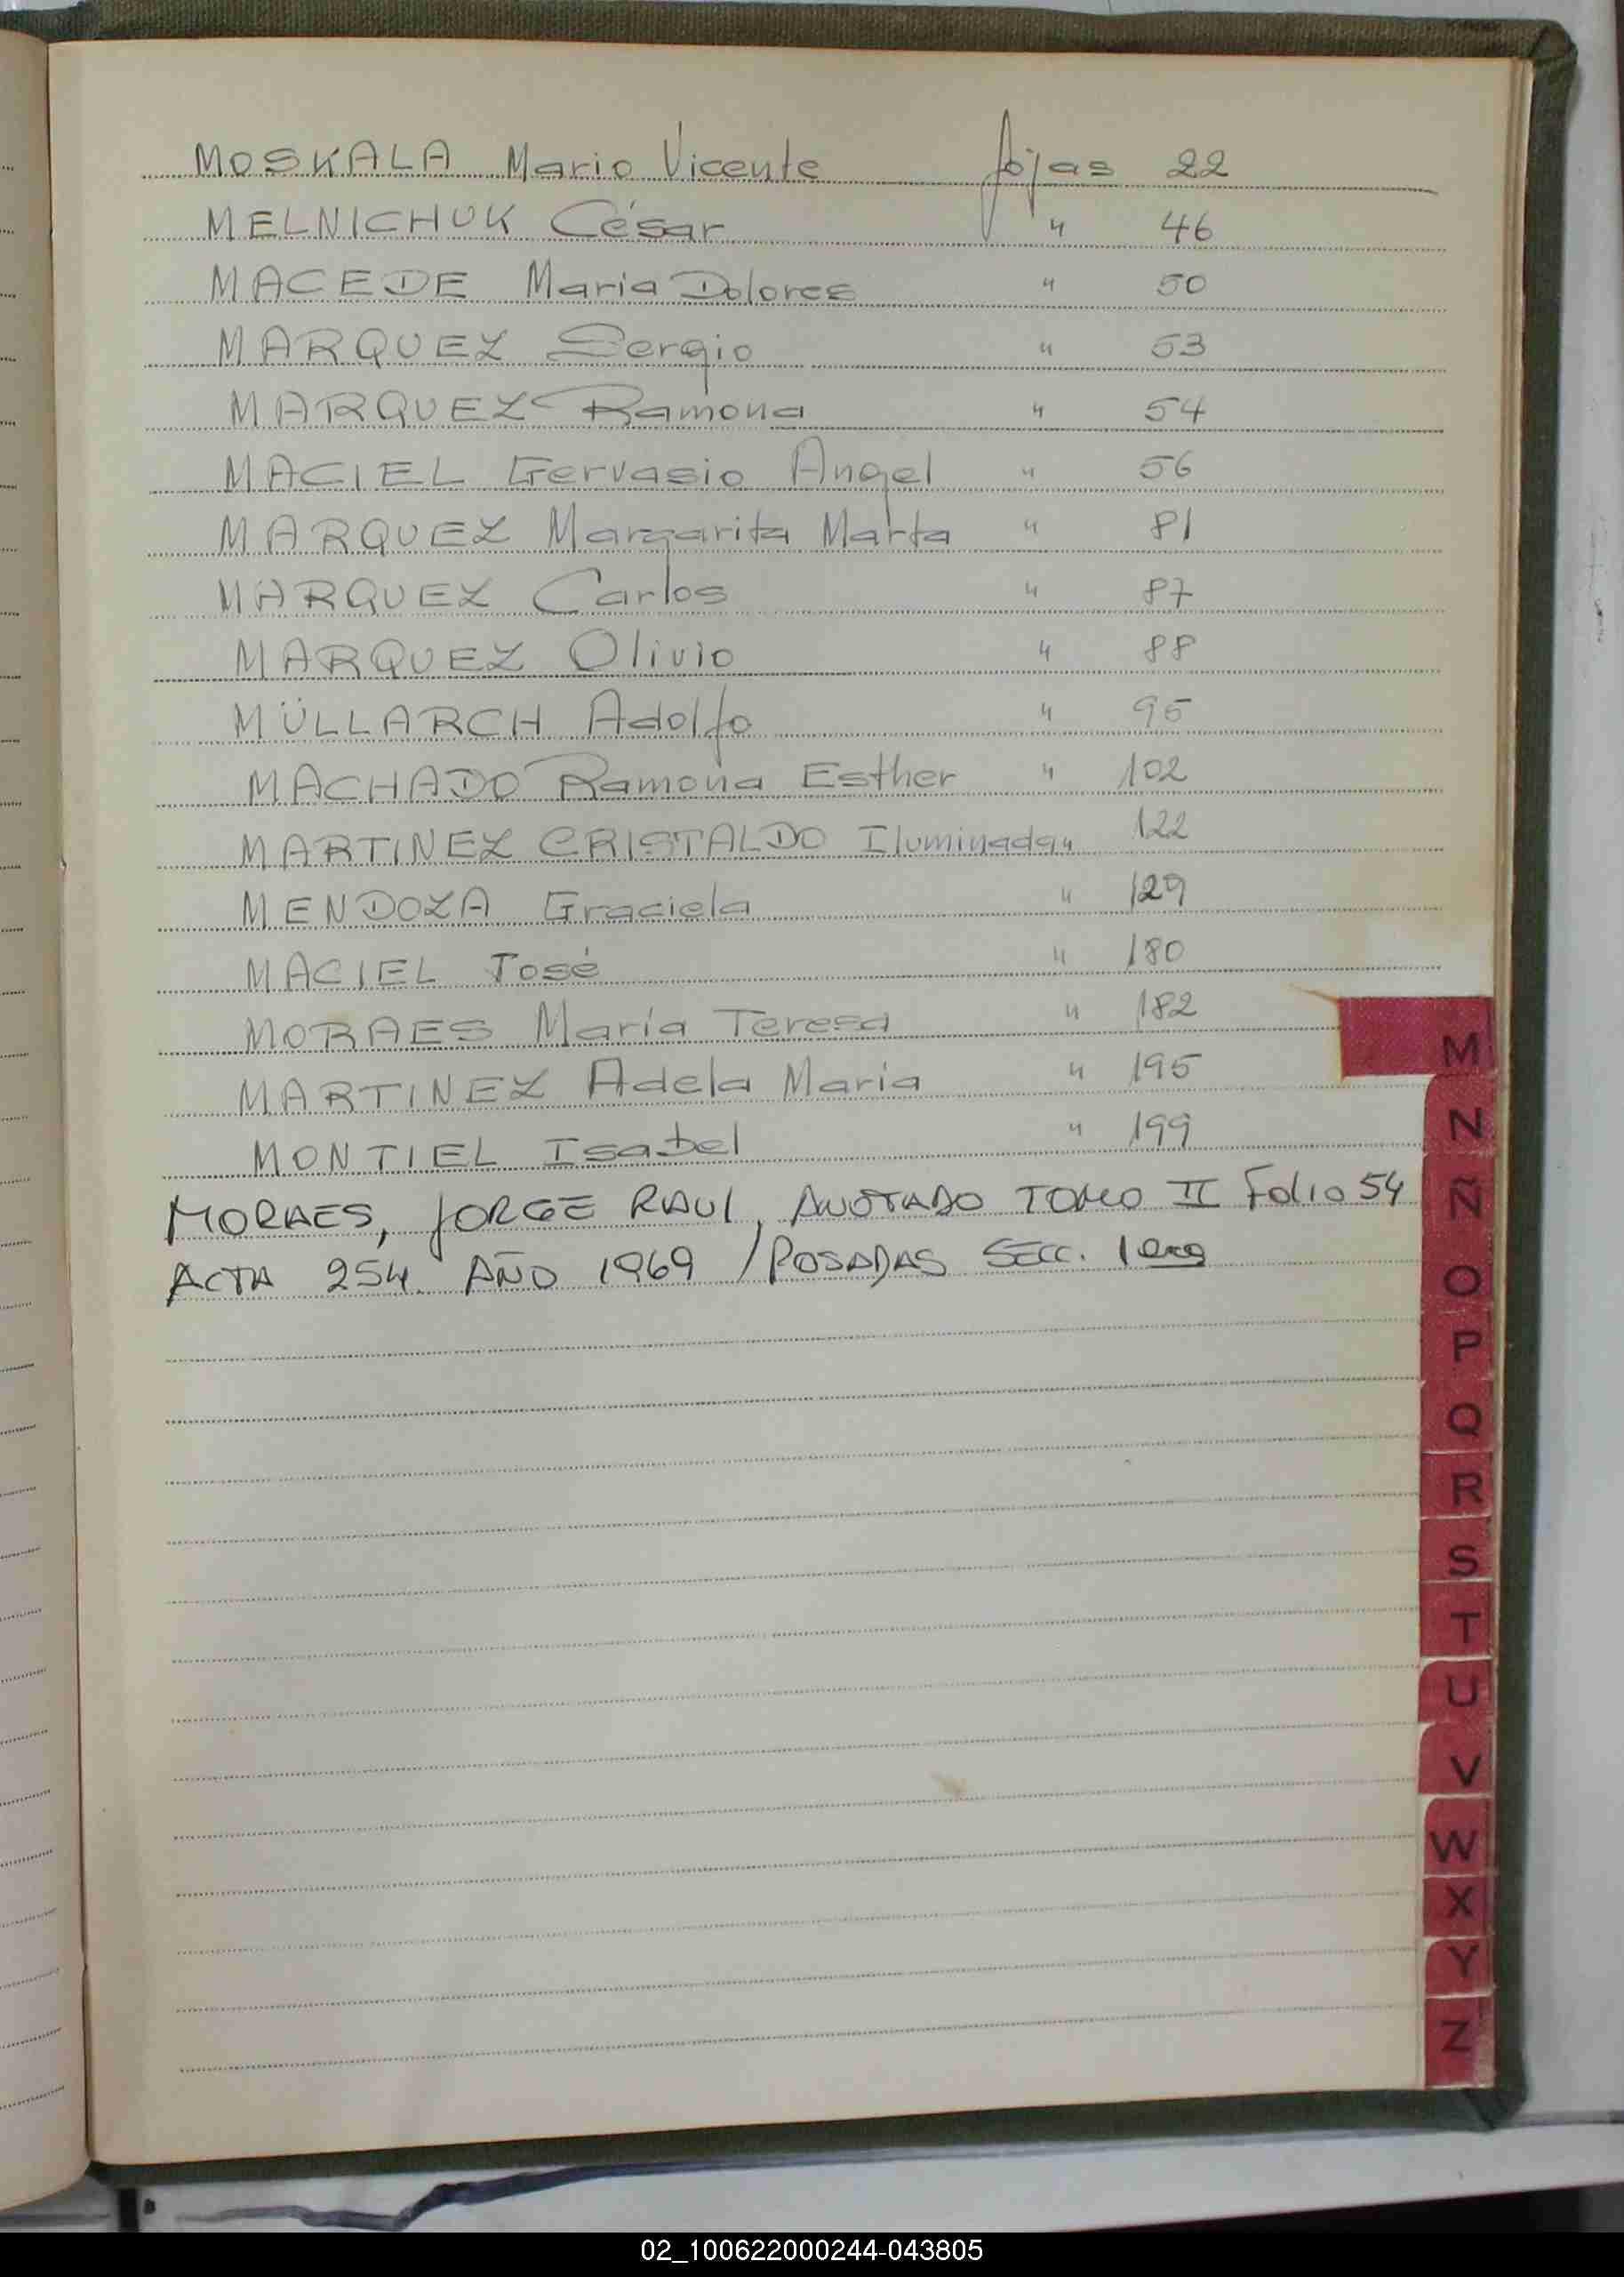 MOSKALA Mario Vicente fojas 22
MELNICHUK César " 46
MACEDE Maria Dolores " 50
MARQUEZ Sergio " 53
MARQUEZ Ramona " 54
MACIEL Gervasio Angel " 56
MARQUEZ Margarita Marta " 81
MARQUEZ Carlos " 87
MARQUEZ Olivio " 88
MÜLLARCH Adolfo " 95
MACHADO Ramona Esther " 102
MARTINEZ CRISTALDO Iluminada " 122
MENDOZA Graciela " 129
MACIEL José " 180
MORAES María Teresa " 182
MARTINEZ Adela Maria " 195
MONTIEL Isabel " 199
MORAES, JORGE RAUL, ANOTADO TOMO II Folio 54
ACTA 254. AÑO 1969 / POSADAS SECC. 1era
M
N
Ñ
O
P
Q
R
S
T
U
V
W
X
Y
Z
02_100622000244-043805